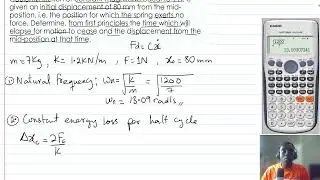 given an initial displacement of 80 mm from the mid-
position, i.e. the position for which the spring exerts no
force. Determine, from first principles the time which will
elapse for motion to cease and the displacement from the
mid-position at that time.
Fd = Cẋ
m = 7Kg, K = 1.2KN/m, F = 1N, x₀ = 80mm
1) Natural Frequency; Wn = √(K/m) = √(1200/7)
Wn = 13.09 rad/s
2) Constant energy loss per half cycle
Δx = 2F/K
CASIO